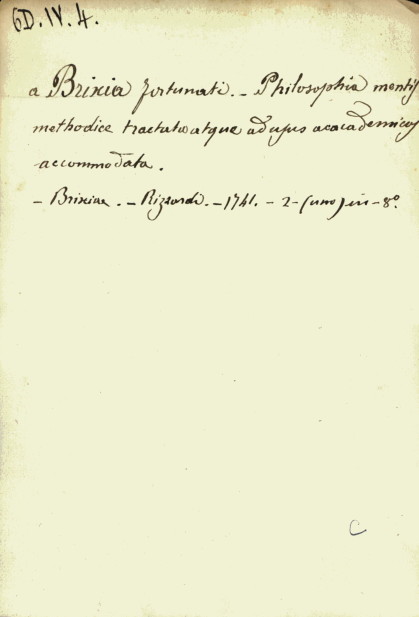 6D.IV.4.
a Brixia fortunati. - Philosophia mentis
methodice tractata atque ad usus acacademicos
accommodata.
- Brixiae. - Rizzardi. - 1741. - 2 - (uno) in - 8°.
C